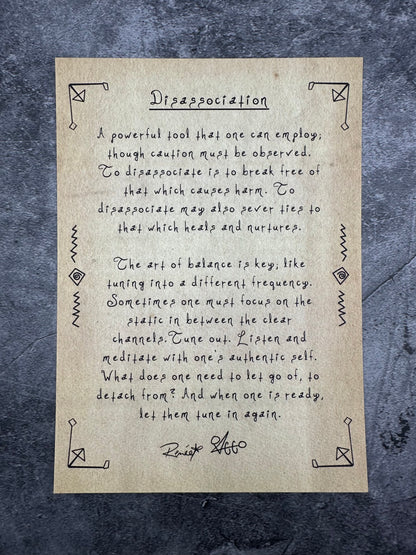 Disassociation
A powerful tool that one can employ;
though caution must be observed.
To disassociate is to break free of
that which causes harm. To
disassociate may also sever ties to
that which heals and nurtures.
The art of balance is key; like
tuning into a different frequency.
Sometimes one must focus on the
static in between the clear
channels. Tune out. Listen and
meditate with one's authentic self.
What does one need to let go of, to
detach from? And when one is ready,
let them tune in again.